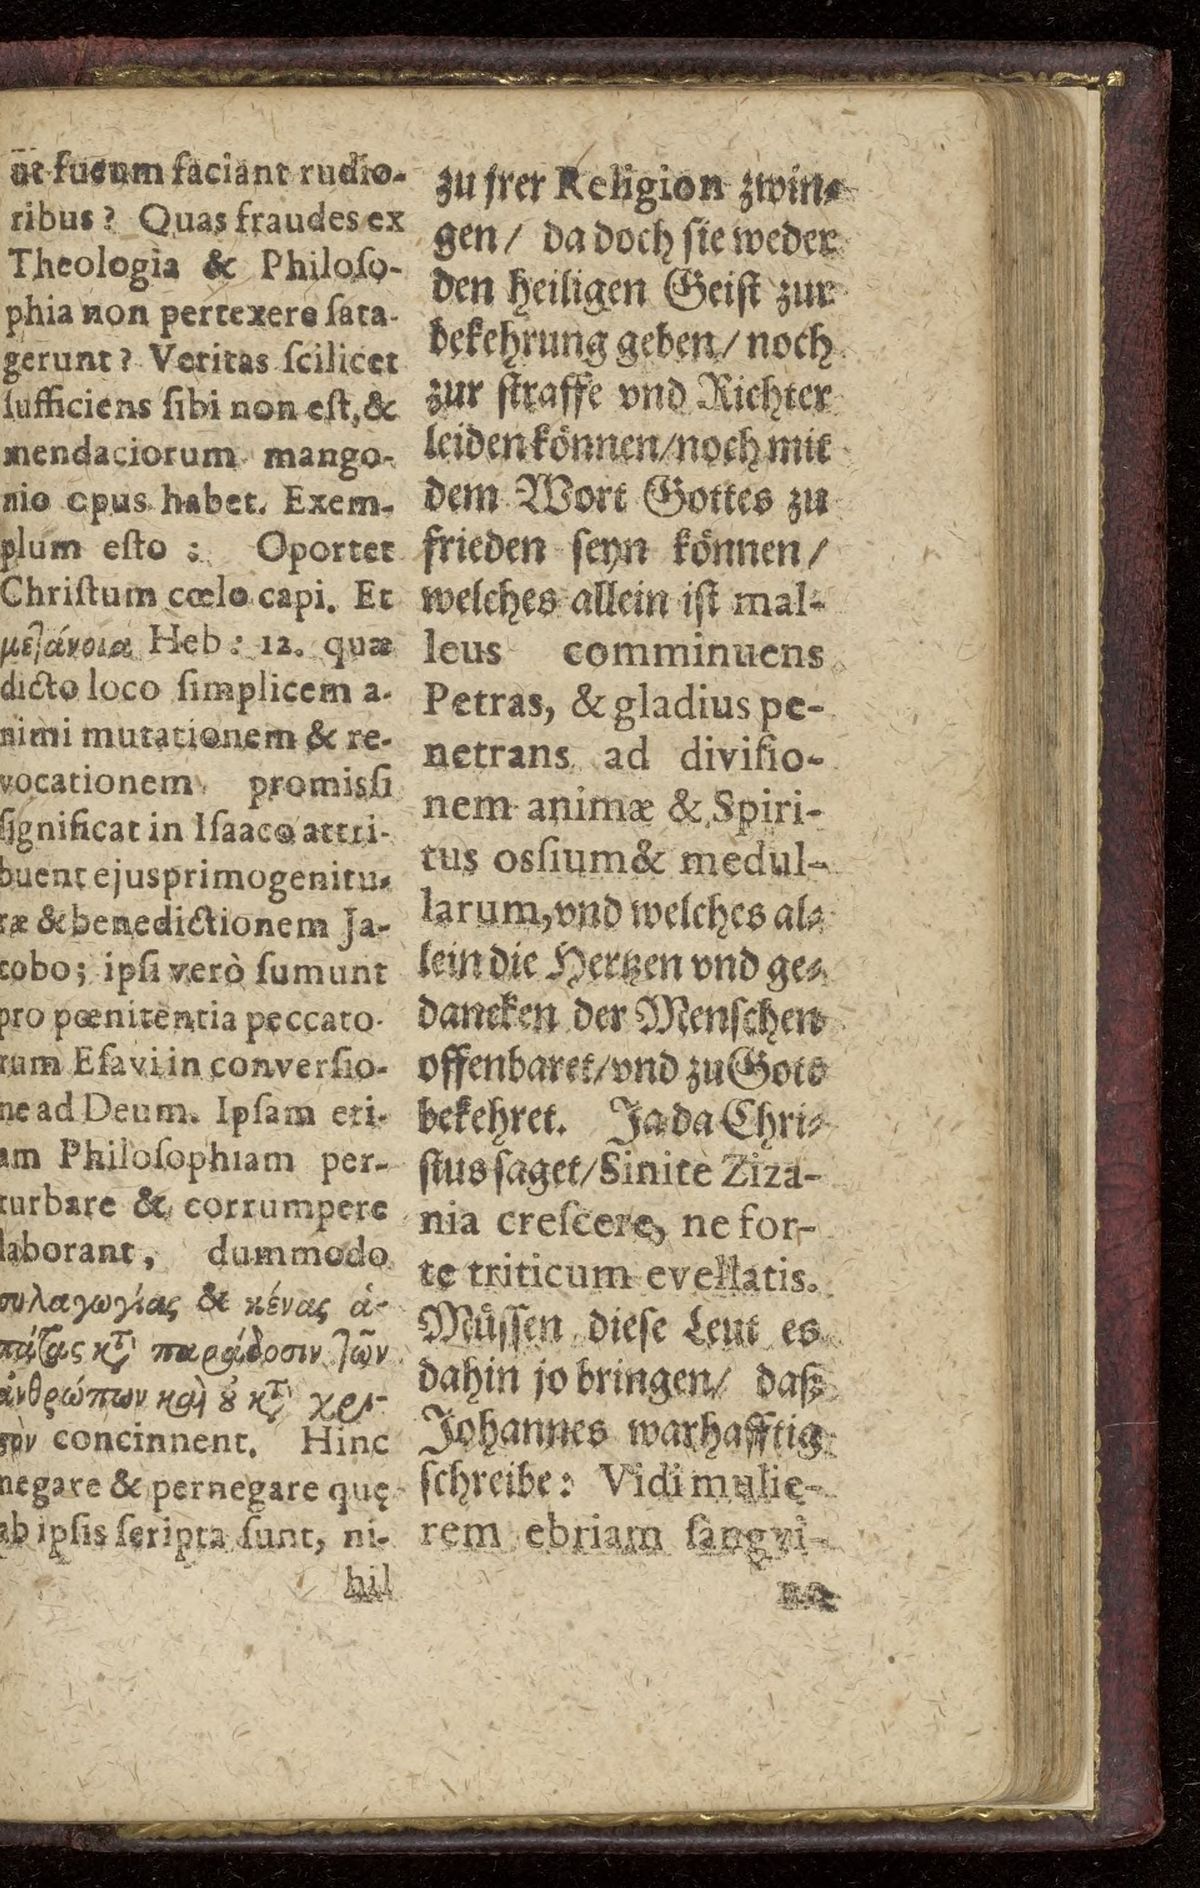 ut fucum faciant rudio-
ribus? Quas fraudes ex
Theologia & Philoſo-
phia non pertexere ſata-
gerunt? Veritas ſcilicet
ſufficiens ſibi non eſt, &
mendaciorum mango-
nio opus habet. Exem-
plum eſto : Oportet
Chriſtum cœlo capi. Et
μετάνοια Heb: 12. quæ
dicto loco ſimplicem a-
nimi mutationem & re-
vocationem promiſſi
ſignificat in Iſaaco attri-
buent ejus primogenitu-
ræ & benedictionem Ja-
cobo; ipſi verò ſumunt
pro pœnitentia peccato-
rum Eſavi in converſio-
ne ad Deum. Ipſam eti-
am Philoſophiam per-
turbare & corrumpere
laborant, dummodo
συλαγωγίας & κένας ἀ-
πάτας κτ̀ παράδοσιν τῶν
ἀνθρώπων καὶ ȣ̓ κτ̀ χρι-
ϛὸν concinnent. Hinc
negare & pernegare quę
ab ipſis ſcripta ſunt, ni-
hil
zu jrer Religion zwin-
gen/ da doch ſie weder
den heiligen Geiſt zur
bekehrung geben/ noch
zur ſtraffe vnd Richter
leiden können/ noch mit
dem Wort Gottes zu
frieden ſeyn können/
welches allein iſt mal-
leus comminuens
Petras, & gladius pe-
netrans ad diviſio-
nem animæ & Spiri-
tus oſſium & medul-
larum, vnd welches al-
lein die Hertzen vnd ge-
dancken der Menſchen
offenbaret/ vnd zu Gott
bekehret. Ja da Chri-
ſtus ſaget/ Sinite Ziza-
nia creſcere, ne for-
te triticum evellatis.
Müſſen dieſe Leut es
dahin jo bringen/ daß
Johannes warhafftig
ſchreibe: Vidi mulie-
rem ebriam ſangvi-